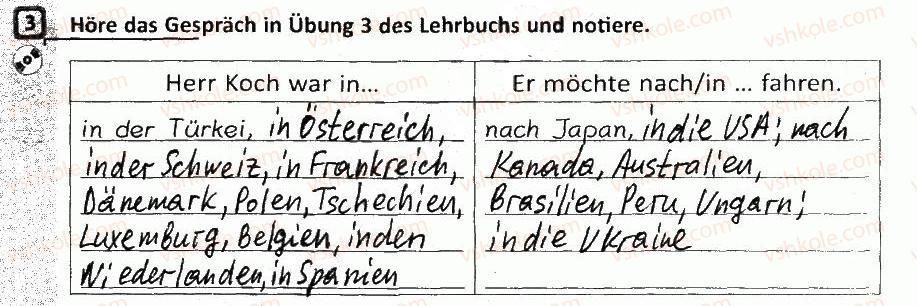 3 Höre das Gespräch in Übung 3 des Lehrbuchs und notiere.
Herr Koch war in...
in der Türkei, in Österreich,
in der Schweiz, in Frankreich,
Dänemark, Polen, Tschechien,
Luxemburg, Belgien, in den
Niederlanden, in Spanien
Er möchte nach/in ... fahren.
nach Japan, in die USA; nach
Kanada, Australien,
Brasilien, Peru, Ungarn;
in die Ukraine
vshkole.com